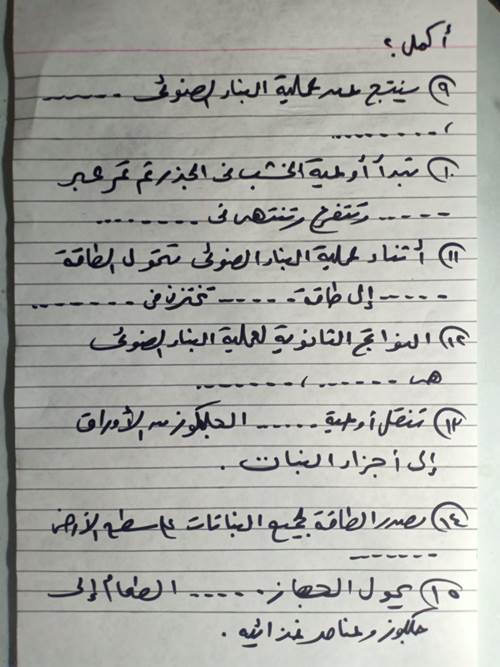 أكمل :
٩ ينتج عن عملية البناء الضوئى .......
، .........
١٠ تبدأ أوعية الخشب فى الجذر ثم تمر عبر
..... وتتفرع وتنتهى فى .........
١١ أثناء عملية البناء الضوئى تتحول الطاقة
..... إلى طاقة ...... تختزن فى .........
١٢ النواتج الثانوية لعملية البناء الضوئى
هى ...... ، .........
١٣ تنقل أوعية ...... الجلوكوز من الأوراق
إلى أجزاء النبات .
١٤ مصدر الطاقة لجميع النباتات على سطح الأرض
.......
١٥ يحول الجهاز ...... الطعام إلى
جلكوز وعناصر غذائيه .